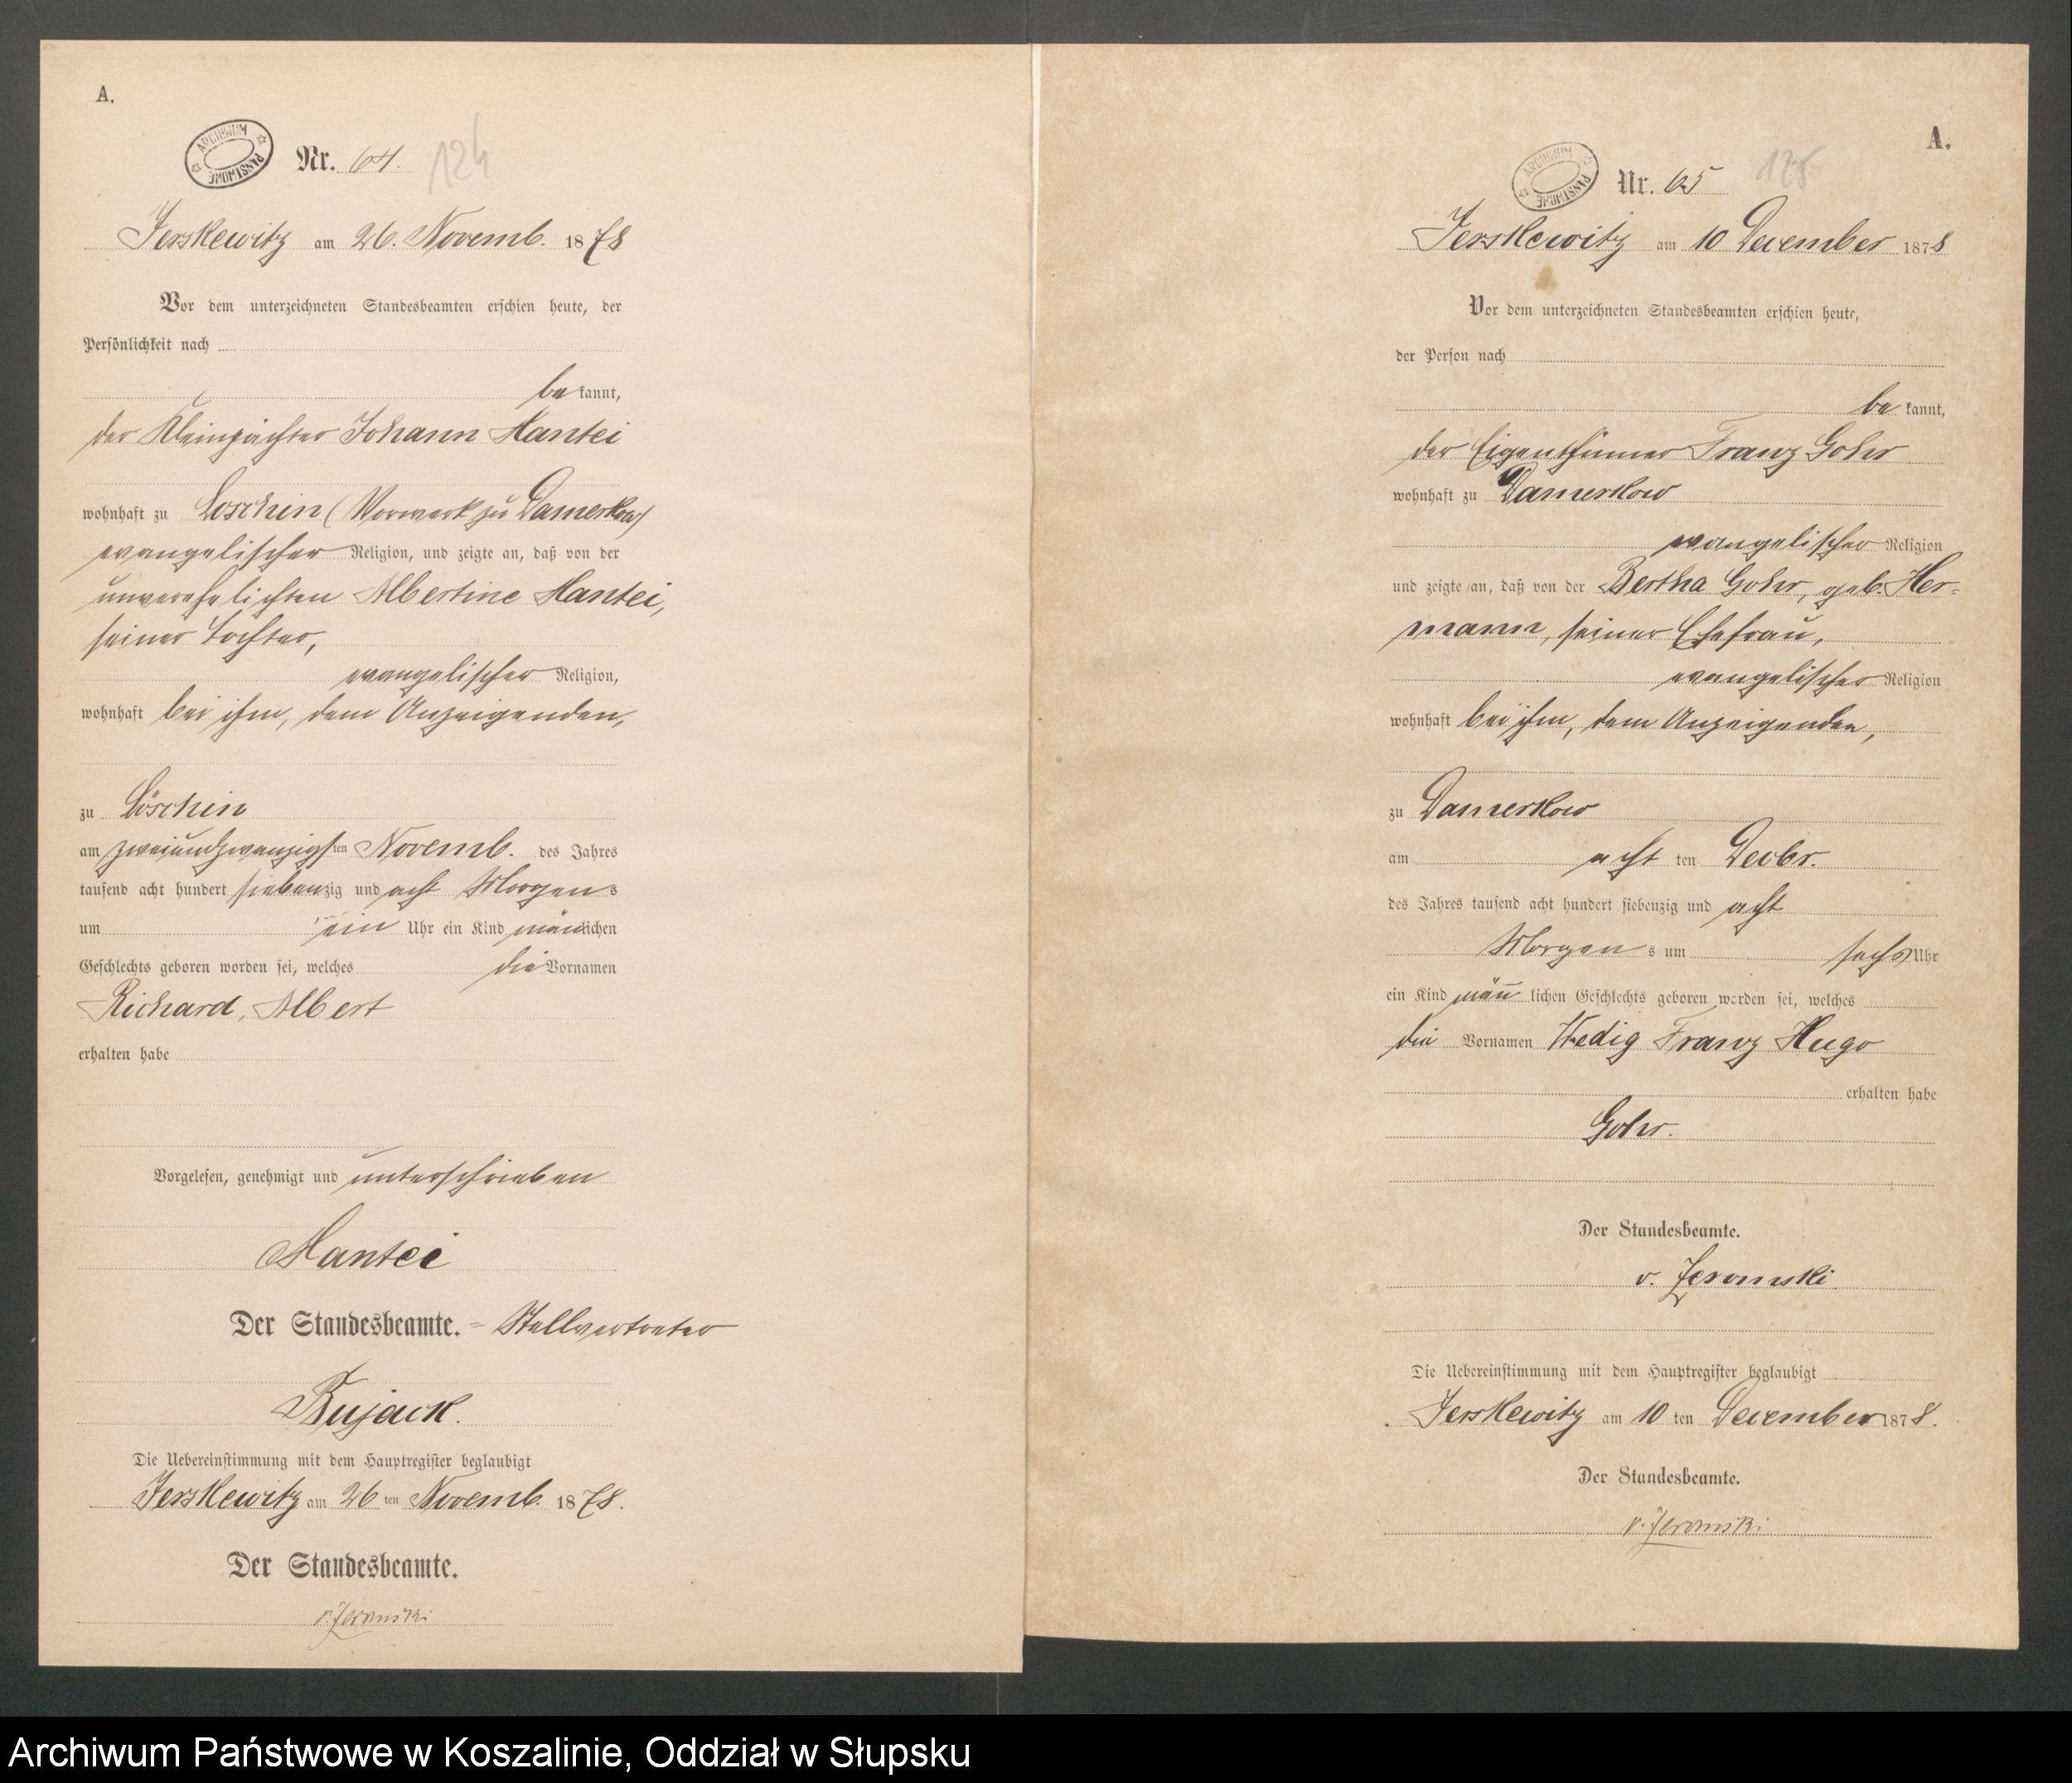 A.
ARCHIWUM PAŃSTWOWE
Nr. 64. 124
Jerskewitz am 26. Novemb. 1878
Vor dem unterzeichneten Standesbeamten erschien heute, der
Persönlichkeit nach
bekannt,
der Kleinpächter Johann Hantei
wohnhaft zu Loschin (Vorwerk zu Damerkow)
evangelischer Religion, und zeigte an, daß von der
unverehelichten Albertine Hantei,
seiner Tochter,
evangelischer Religion,
wohnhaft bei ihm, dem Anzeigenden,
zu Löschin
am zweiundzwanzigsten Novemb. des Jahres
tausend acht hundert siebenzig und acht Morgens
um ein Uhr ein Kind männlichen
Geschlechts geboren worden sei, welches die Vornamen
Richard, Albert
erhalten habe
Vorgelesen, genehmigt und unterschrieben
Hantei
Der Standesbeamte. = Stellvertreter
Bujack.
Die Uebereinstimmung mit dem Hauptregister beglaubigt
Jerskewitz am 26 ten Novemb. 1878.
Der Standesbeamte.
v. Jeromski
A.
ARCHIWUM PAŃSTWOWE
Nr. 65 125
Jerskewitz am 10 December 1878
Vor dem unterzeichneten Standesbeamten erschien heute,
der Person nach
bekannt,
der Eigenthümer Franz Gohr
wohnhaft zu Damerkow
evangelischer Religion
und zeigte an, daß von der Bertha Gohr, geb. Her=
mann, seiner Ehefrau,
evangelischer Religion
wohnhaft bei ihm, dem Anzeigenden,
zu Damerkow
am acht ten Decbr.
des Jahres tausend acht hundert siebenzig und acht
Morgens um sechs Uhr
ein Kind männlichen Geschlechts geboren worden sei, welches
die Vornamen Wedig Franz Hugo
erhalten habe
Gohr.
Der Standesbeamte.
v. Jeromski
Die Uebereinstimmung mit dem Hauptregister beglaubigt
Jerskewitz am 10 ten December 1878.
Der Standesbeamte.
v. Jeromski
Archiwum Państwowe w Koszalinie, Oddział w Słupsku